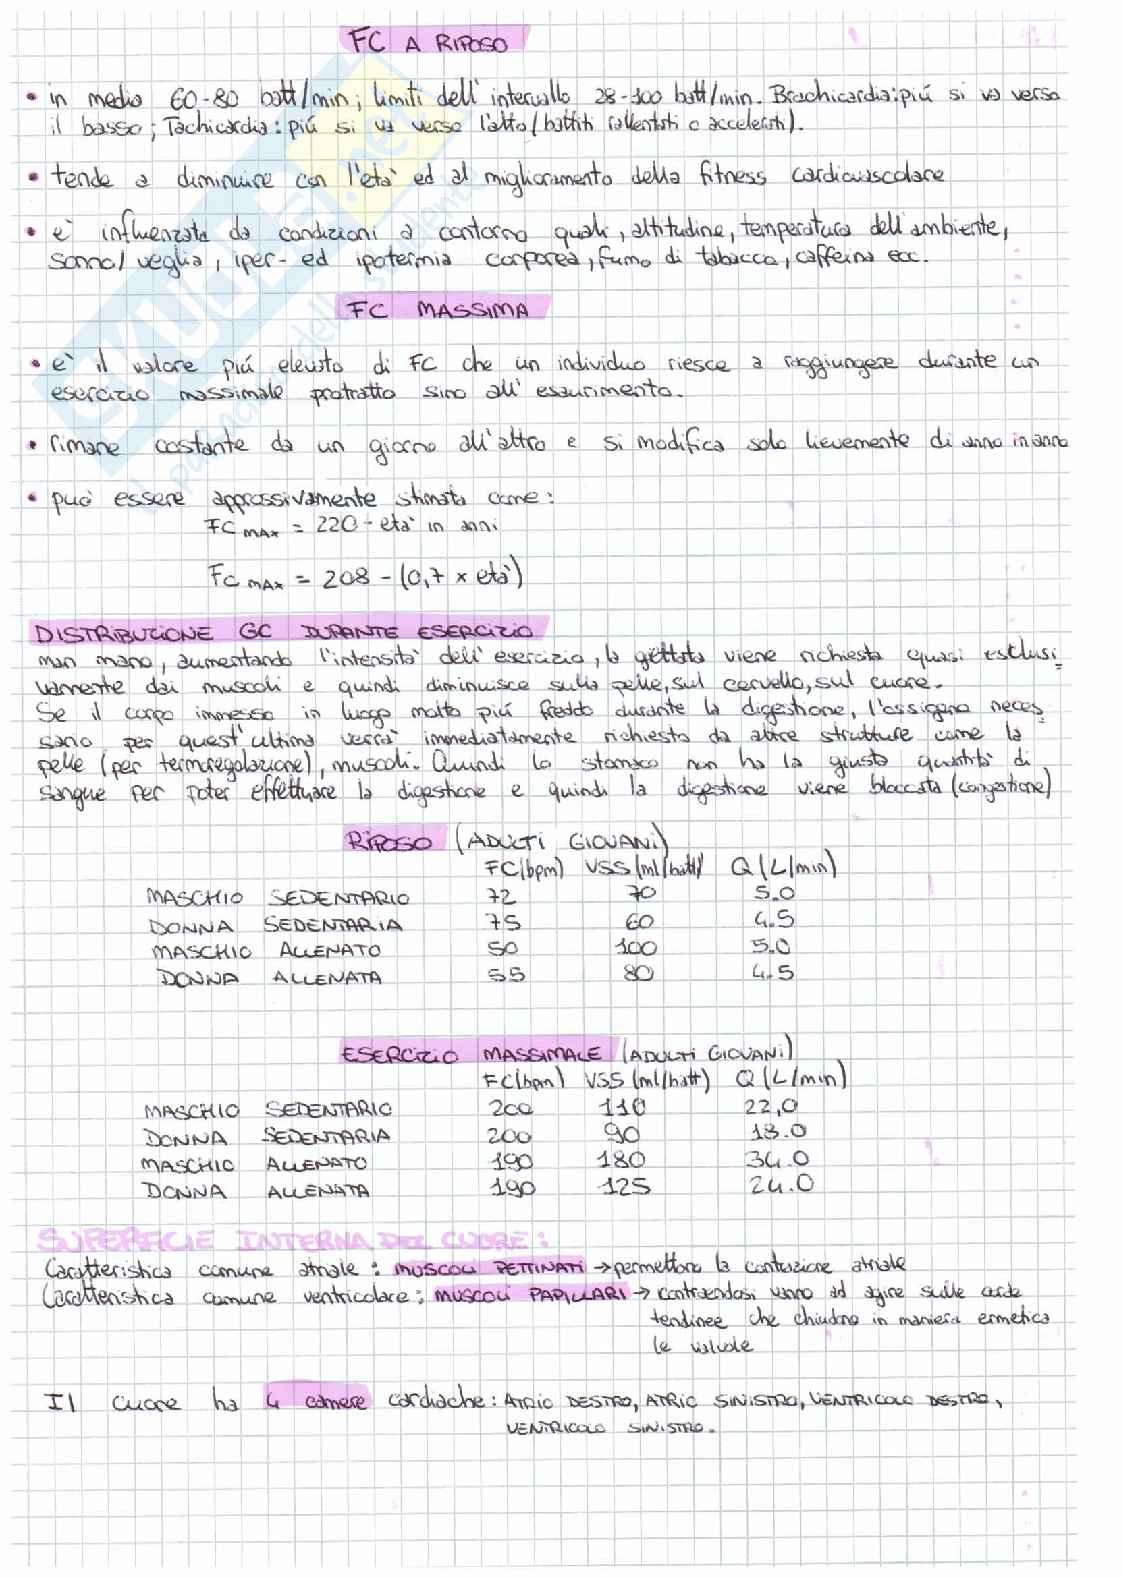 FC A RIPOSO
• in media 60-80 batt/min; limiti dell'intervallo 28-100 batt/min. Brachicardia: piú si va verso
il basso; Tachicardia: piú si va verso l'alto (battiti rallentati o accelerati).
• tende a diminuire con l'età ed al miglioramento della fitness cardiovascolare
• è influenzata da condizioni a contorno quali, altitudine, temperatura dell'ambiente,
sonno/veglia, iper- ed ipotermia corporea, fumo di tabacco, caffeina ecc.
FC MASSIMA
• è il valore piú elevato di FC che un individuo riesce a raggiungere durante un
esercizio massimale protratto sino all'esaurimento.
• rimane costante da un giorno all'altro e si modifica solo lievemente di anno in anno
• può essere approssivamente stimata come:
FC MAX = 220 - età in anni
FC MAX = 208 - (0,7 x età)
DISTRIBUZIONE GC DURANTE ESERCIZIO
man mano, aumentando l'intensità dell'esercizio, la gittata viene richiesta quasi esclusi
vamente dai muscoli e quindi diminuisce sulla pelle, sul cervello, sul cuore.
Se il corpo immesso in luogo molto piú freddo durante la digestione, l'ossigeno neces
sario per quest'ultima verrà immediatamente richiesto da altre strutture come la
pelle (per termoregolazione), muscoli. Quindi lo stomaco non ha la giusta quantità di
sangue per poter effettuare la digestione e quindi la digestione viene bloccata (congestione)
RIPOSO (ADULTI GIOVANI)
FC(bpm) VSS (ml/batt) Q (L/min)
MASCHIO SEDENTARIO 72 70 5.0
DONNA SEDENTARIA 75 60 4.5
MASCHIO ALLENATO 50 100 5.0
DONNA ALLENATA 55 80 4.5
ESERCIZIO MASSIMALE (ADULTI GIOVANI)
FC(bpm) VSS (ml/batt) Q (L/min)
MASCHIO SEDENTARIO 200 110 22,0
DONNA SEDENTARIA 200 90 18.0
MASCHIO ALLENATO 190 180 34.0
DONNA ALLENATA 190 125 24.0
SUPERFICIE INTERNA DEL CUORE:
Caratteristica comune atriale: MUSCOLI PETTINATI → permettono la contrazione atriale
Caratteristica comune ventricolare: MUSCOLI PAPILLARI → contraendosi vanno ad agire sulle corde
tendinee che chiudono in maniera ermetica
le valvole
Il cuore ha 4 camere cardiache: ATRIO DESTRO, ATRIO SINISTRO, VENTRICOLO DESTRO,
VENTRICOLO SINISTRO.